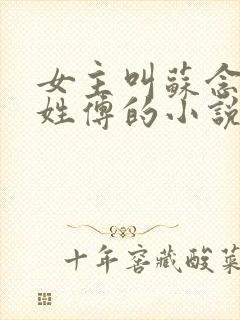 女主叫蘇念
姓傅的小說
十年窖藏酸菜